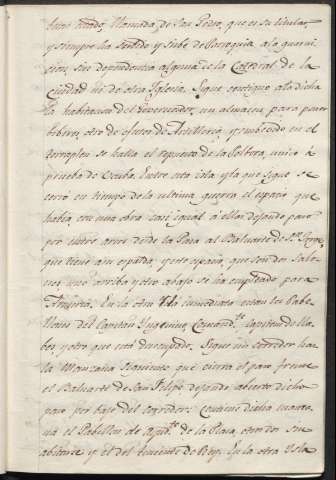 llamada de San Pedro, que es su titular,
y siempre ha servido y sirbe de Parroquia a la guarni-
cion, sin dependencia alguna de la Catedral de la
ciudad ni de otra Iglesia. Sigue contiguo a la dicha
la habitacion del Governador, un almacen para poner
biberes, otro de efectos de Artilleria, y embebido en el
terraplen se halla el repuesto de la Polbora, unico à
prueba de bomba. Entre esta isla y la que sigue se
cerrò en tiempo de la ultima guerra el espacio que
habia con una obra casi igual à ellas dejando paso
por entre arcos desde la Plaza al Baluarte de Sn. Jorge,
que tiene a su espalda, y este espacio, que son dos salo-
nes uno arriba y otro abajo se ha empleado para
Armeria. En la otra Isla inmediata estan los Pabe-
llones del Capitan Yngeniero, Comand.te, Capitan de lla-
bes, y otro que está desocupado. Sigue un corredor hasta
la Manzana siguiente que cierra el paso frente
el Baluarte de San Felipe dejando abierto dicho
paso por bajo del corredor: contiene dicha manza-
na el Pabellon de Ayud.te de la Plaza, otro dos sin
abitarse y el del teniente de Rey. En la otra Ysla